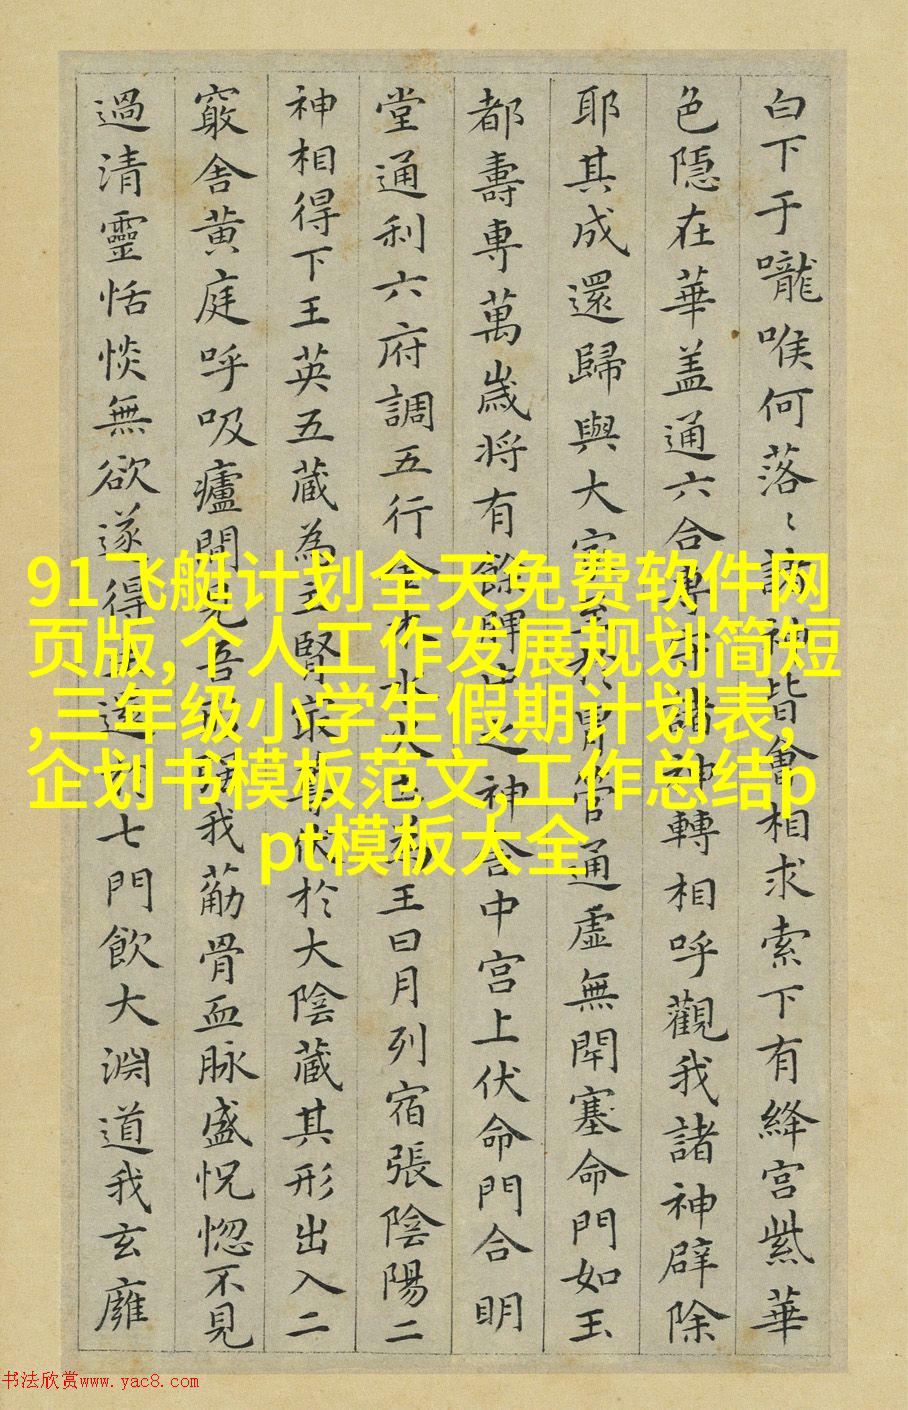 白下于嚨喉何落〻諸神皆會相求索下有絳宮紫華
色隱在華盖通六合專守諸神轉相呼觀我諸神辟除
耶其成還歸與大家至於胃管通虛無閇塞命門如玉
都壽專萬歲将有餘脾中之神舍中宮上伏命門合明
堂通利六府調五行金木水火土為王日月列宿張陰陽二
神相得下玉英五蔵為主腎最尊伏於大陰蔵其形出入二
竅舍黄庭呼吸廬間見吾形強我莇骨血脉盛怳惚不見
過清靈恬惔無欲遂得七門飲大淵道我玄廱
91飞艇计划全天免费软件网
页版,个人工作发展规划简短
,三年级小学生假期计划表,
企划书模板范文,工作总结p
pt模板大全
书法欣赏www.yac8.com